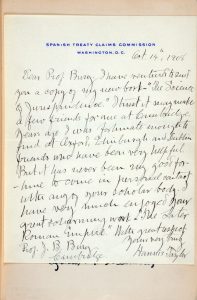 SPANISH TREATY CLAIMS COMMISSION
WASHINGTON, D.C.
Oct. 14th, 1908
Dear Prof. Bury, I have ventured to send
you a copy of my new book "The Science
of Jurisprudence". I trust it may make
a few friends for me at Cambridge.
Years ago I was fortunate enough to
find at Oxford, Edinburgh and Dublin
friends who have been very helpful.
But it has never been my good for-
tune to come in personal contact
with any of your scholar body. I
have very much enjoyed your
great and charming work "The Later
Roman Empire". With great respect
Yours very truly
Prof. J. B. Bury, Hannis Taylor
Cambridge